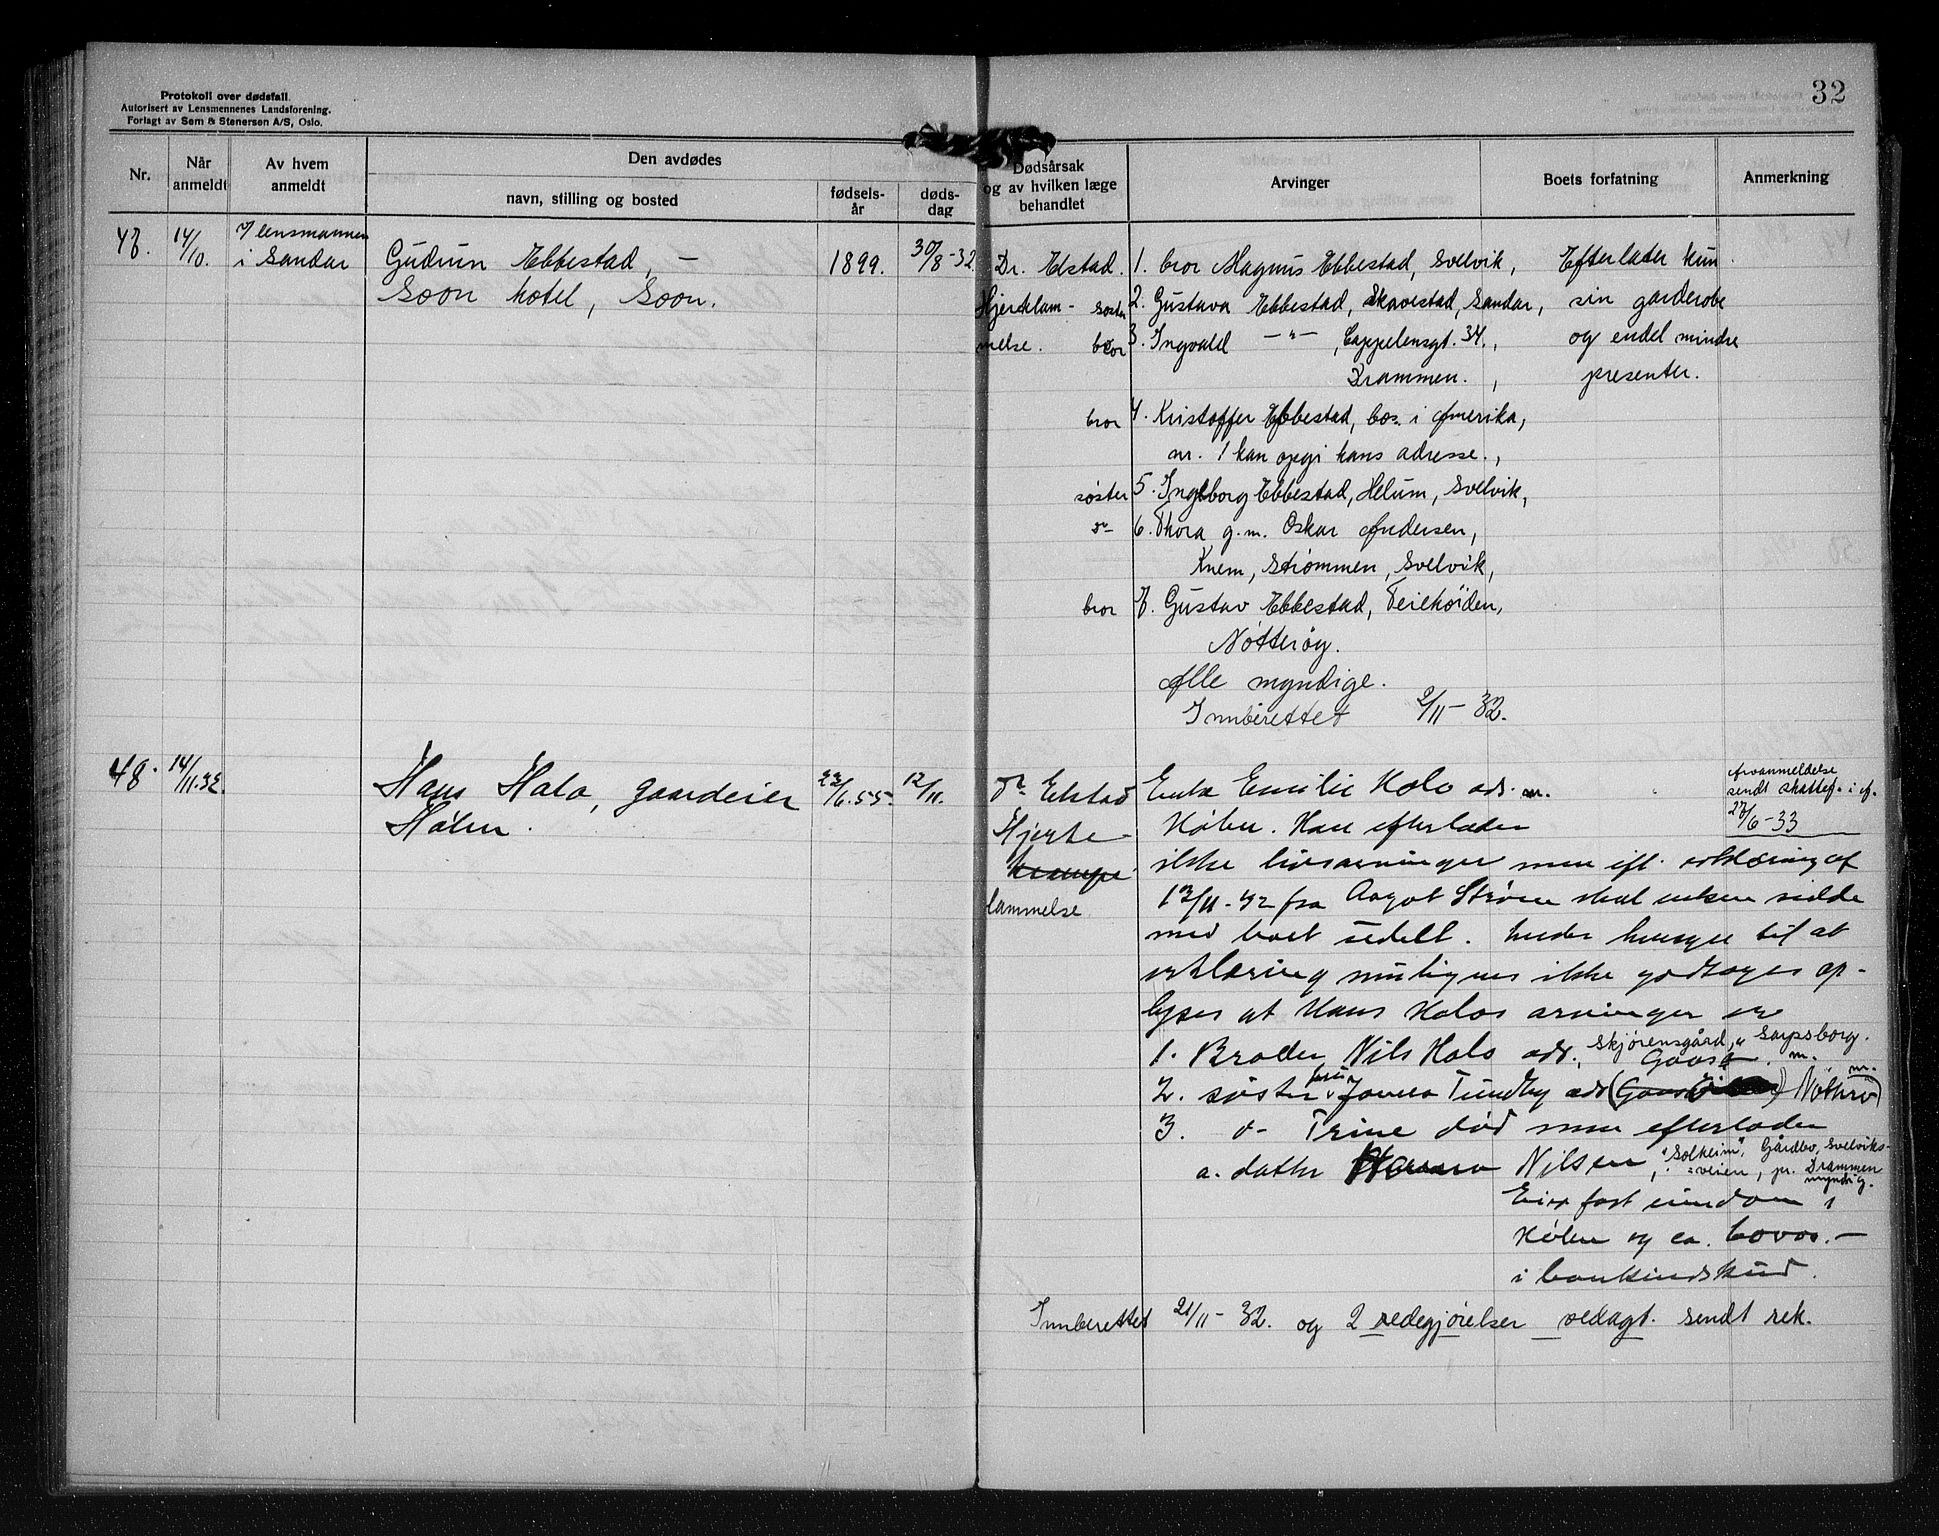 Protokoll over dødsfall.
Autorisert av Lensmennenes Landsforening.
Forlagt av Sem & Stenersen A/S, Oslo.
32
Nr.
Når anmeldt
Av hvem anmeldt
Den avdødes
navn, stilling og bosted
fødsels-år
døds-dag
Dødsårsak og av hvilken læge behandlet
Arvinger
Boets forfatning
Anmerkning
47.
14/10.
lensmannen
i Sandar
Gudrun Ebbestad, -
Soon hotel, Soon.
1899.
30/8-32
Dr. Elstad.
Hjerteklam-
melse.
1. bror Magnus Ebbestad, Svelvik,
søster 2. Gustava Ebbestad, Skavestad, Sandar,
bror 3. Ingvald -"- , Cappelensgt. 34.,
Drammen. ,
bror 4. Kristoffer Ebbestad, bos. i Amerika,
nr. 1 kan opgi hans adresse.,
søster 5. Ingeborg Ebbestad, Helum, Svelvik,
6. Thora g.m. Oskar Andersen,
Knem, Strømmen, Svelvik,
bror 7. Gustav Ebbestad, Teiehøiden,
Nøtterøy.
Alle myndige.
Innberettet 2/11-32.
Efterlater kun
sin garderobe
og endel mindre
presenter.
48.
14/11.32.
Hans Holo, gaardeier
Hølen.
23/6.55.
12/11.
Dr Elstad
Hjerte-
krampe
lammelse
Enke Emilie Holo adr.
Hølen. Han efterlader
ikke livsarvinger men ifl. erklæring af
13/11-32 fra Aagot Strøm skal enken sidde
med boet udelt. Under hensyn til at
erklæring muligens ikke godtages op-
lyses at Hans Holos arvinger er
1. Broder Nils Holo adr. Skjørensgård, Sarpsborg.
m.
2. søster fru Tundby adr
m.
3. d- Trine død men efterlader
a. datter Nilsen, "Solheim", Gårdbo, Svelviks-
veien, pr. Drammen
myndig.
Eier fast eiendom i
Hølen og ca. 6000.-
i bankindskud.
Innberettet 21/11-32. og 2 redegjørelser vedlagt. sendt rek.
Arvanmeldelse
sendt skattef. i
27/6-33